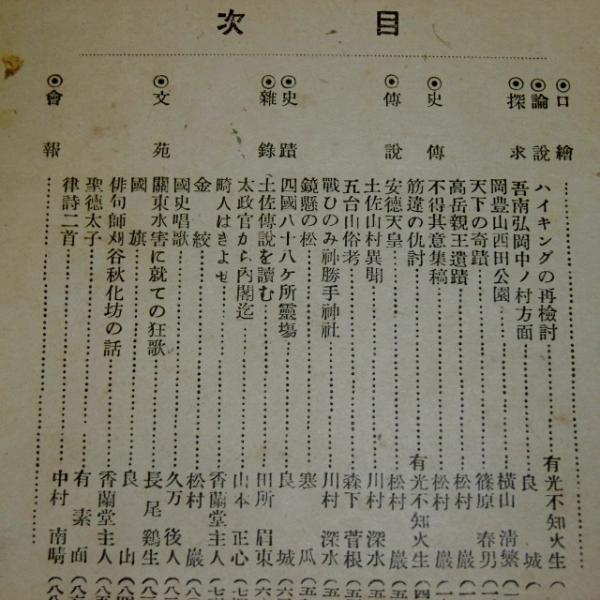 目次
◉口繪
◉論說 ハイキングの再檢討 有光不知火生
◉探求 吾南弘岡中ノ村方面 良城
岡豐山西田公園 橫山清繁
天下の奇蹟 篠原春男
高岳親王遺蹟 松村巖
◉史傳 不得其意集稿 松村巖
筋違の仇討 有光不知火生
◉傳說 安德天皇 松村巖
土佐山村異聞 川村深水
五台山俗考 森下菅根
戰ひのみ神勝手神社 川村深水
鏡懸の松 寒瓜
◉史蹟 四國八十八ケ所靈場 良城
◉雜錄 土佐傳說を讀む 田所眉東
太政官から內閣迄 山本正心
畸人はきよせ 香蘭堂主人
金紋 松村巖
國史唱歌 久万後人
◉文苑 關東水害に就ての狂歌 長尾鷄生
國旗 良山
俳句師刈谷秋化坊の話 香蘭堂主人
聖德太子 有素面
律詩二首 中村南晴
◉會報